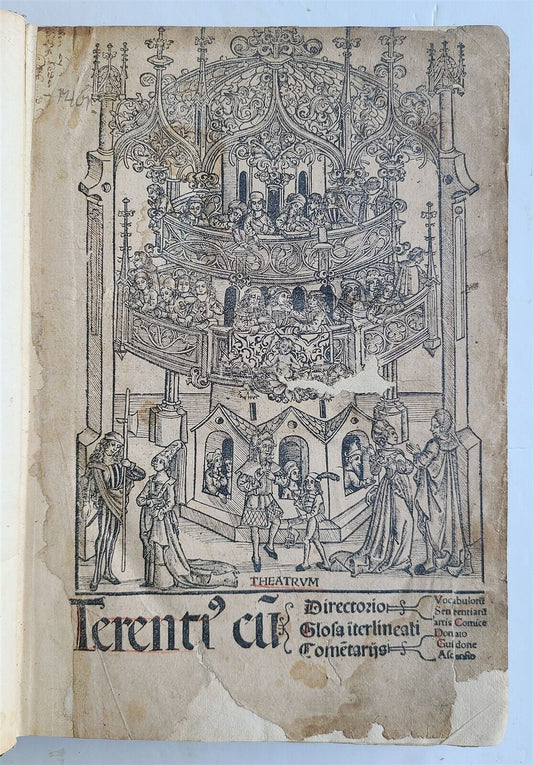 1496
THEATRVM
Terentiꝰ cū
Directorio
Glosa īterlineali
Comētarijs
Vocabulorū
Sententiarū
artis Comice
Donato
Guidone
Ascensio